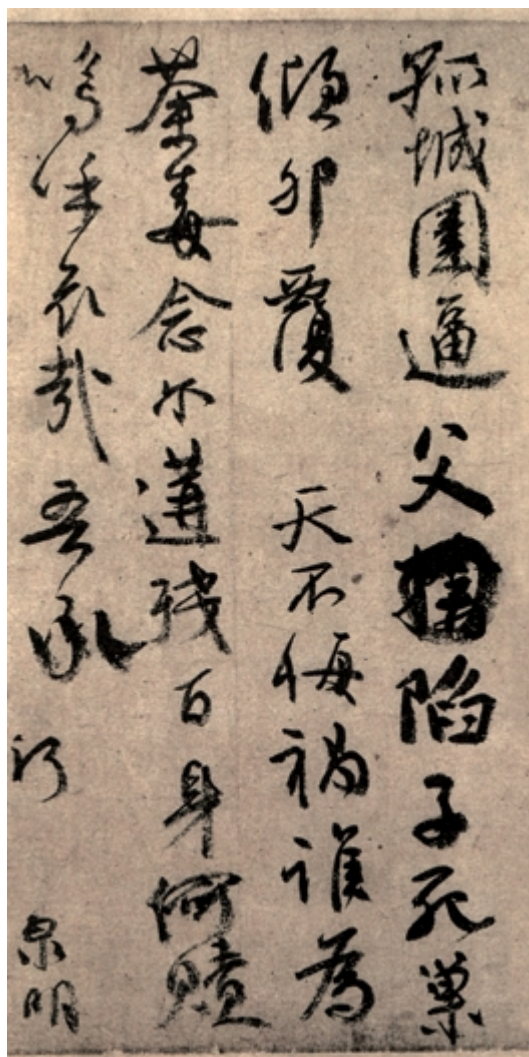 孤城圍逼父陷子死巢
傾卵覆 天不悔禍誰為
荼毒念尔遘殘百身何贖
嗚呼哀哉吾承
泉明